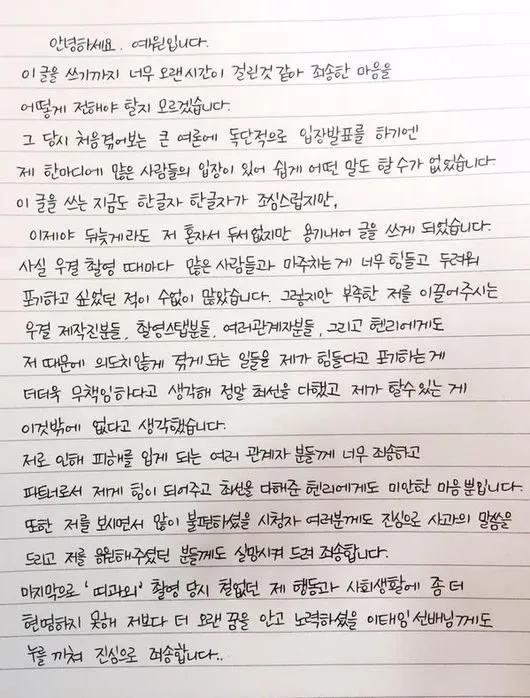 안녕하세요. 예원입니다.
이 글을 쓰기까지 너무 오랜시간이 걸린것 같아 죄송한 마음을
어떻게 전해야 할지 모르겠습니다.
그 당시 처음겪어보는 큰 여론에 독단적으로 입장발표를 하기엔
제 한마디에 많은 사람들의 입장이 있어 쉽게 어떤 말도 할 수가 없었습니다.
이 글을 쓰는 지금도 한글자 한글자가 조심스럽지만,
이제야 뒤늦게라도 저 혼자서 두서없지만 용기내어 글을 쓰게 되었습니다.
사실 우결 촬영 때마다 많은 사람들과 마주치는게 너무 힘들고 두려워
포기하고 싶었던 적이 수없이 많았습니다. 그렇지만 부족한 저를 이끌어주시는
우결 제작진분들, 촬영스탭분들, 여러관계자분들, 그리고 헨리에게도
저 때문에 의도치않게 겪게되는 일들을 제가 힘들다고 포기하는게
더더욱 무책임하다고 생각해 정말 최선을 다했고 제가 할수있는 게
이것밖에 없다고 생각했습니다.
저로 인해 피해를 입게 되는 여러 관계자 분들께 너무 죄송하고
파트너로서 제게 힘이 되어주고 최선을 다해준 헨리에게도 미안한 마음뿐입니다.
또한 저를 보시면서 많이 불편하셨을 시청자 여러분께도 진심으로 사과의 말씀을
드리고 저를 응원해주셨던 분들께도 실망시켜 드려 죄송합니다.
마지막으로 '띠과외' 촬영 당시 철없던 제 행동과 사회생활에 좀 더
현명하지 못해 저보다 더 오랜 꿈을 안고 노력하셨을 이태임선배님께도
누를 끼쳐 진심으로 죄송합니다..